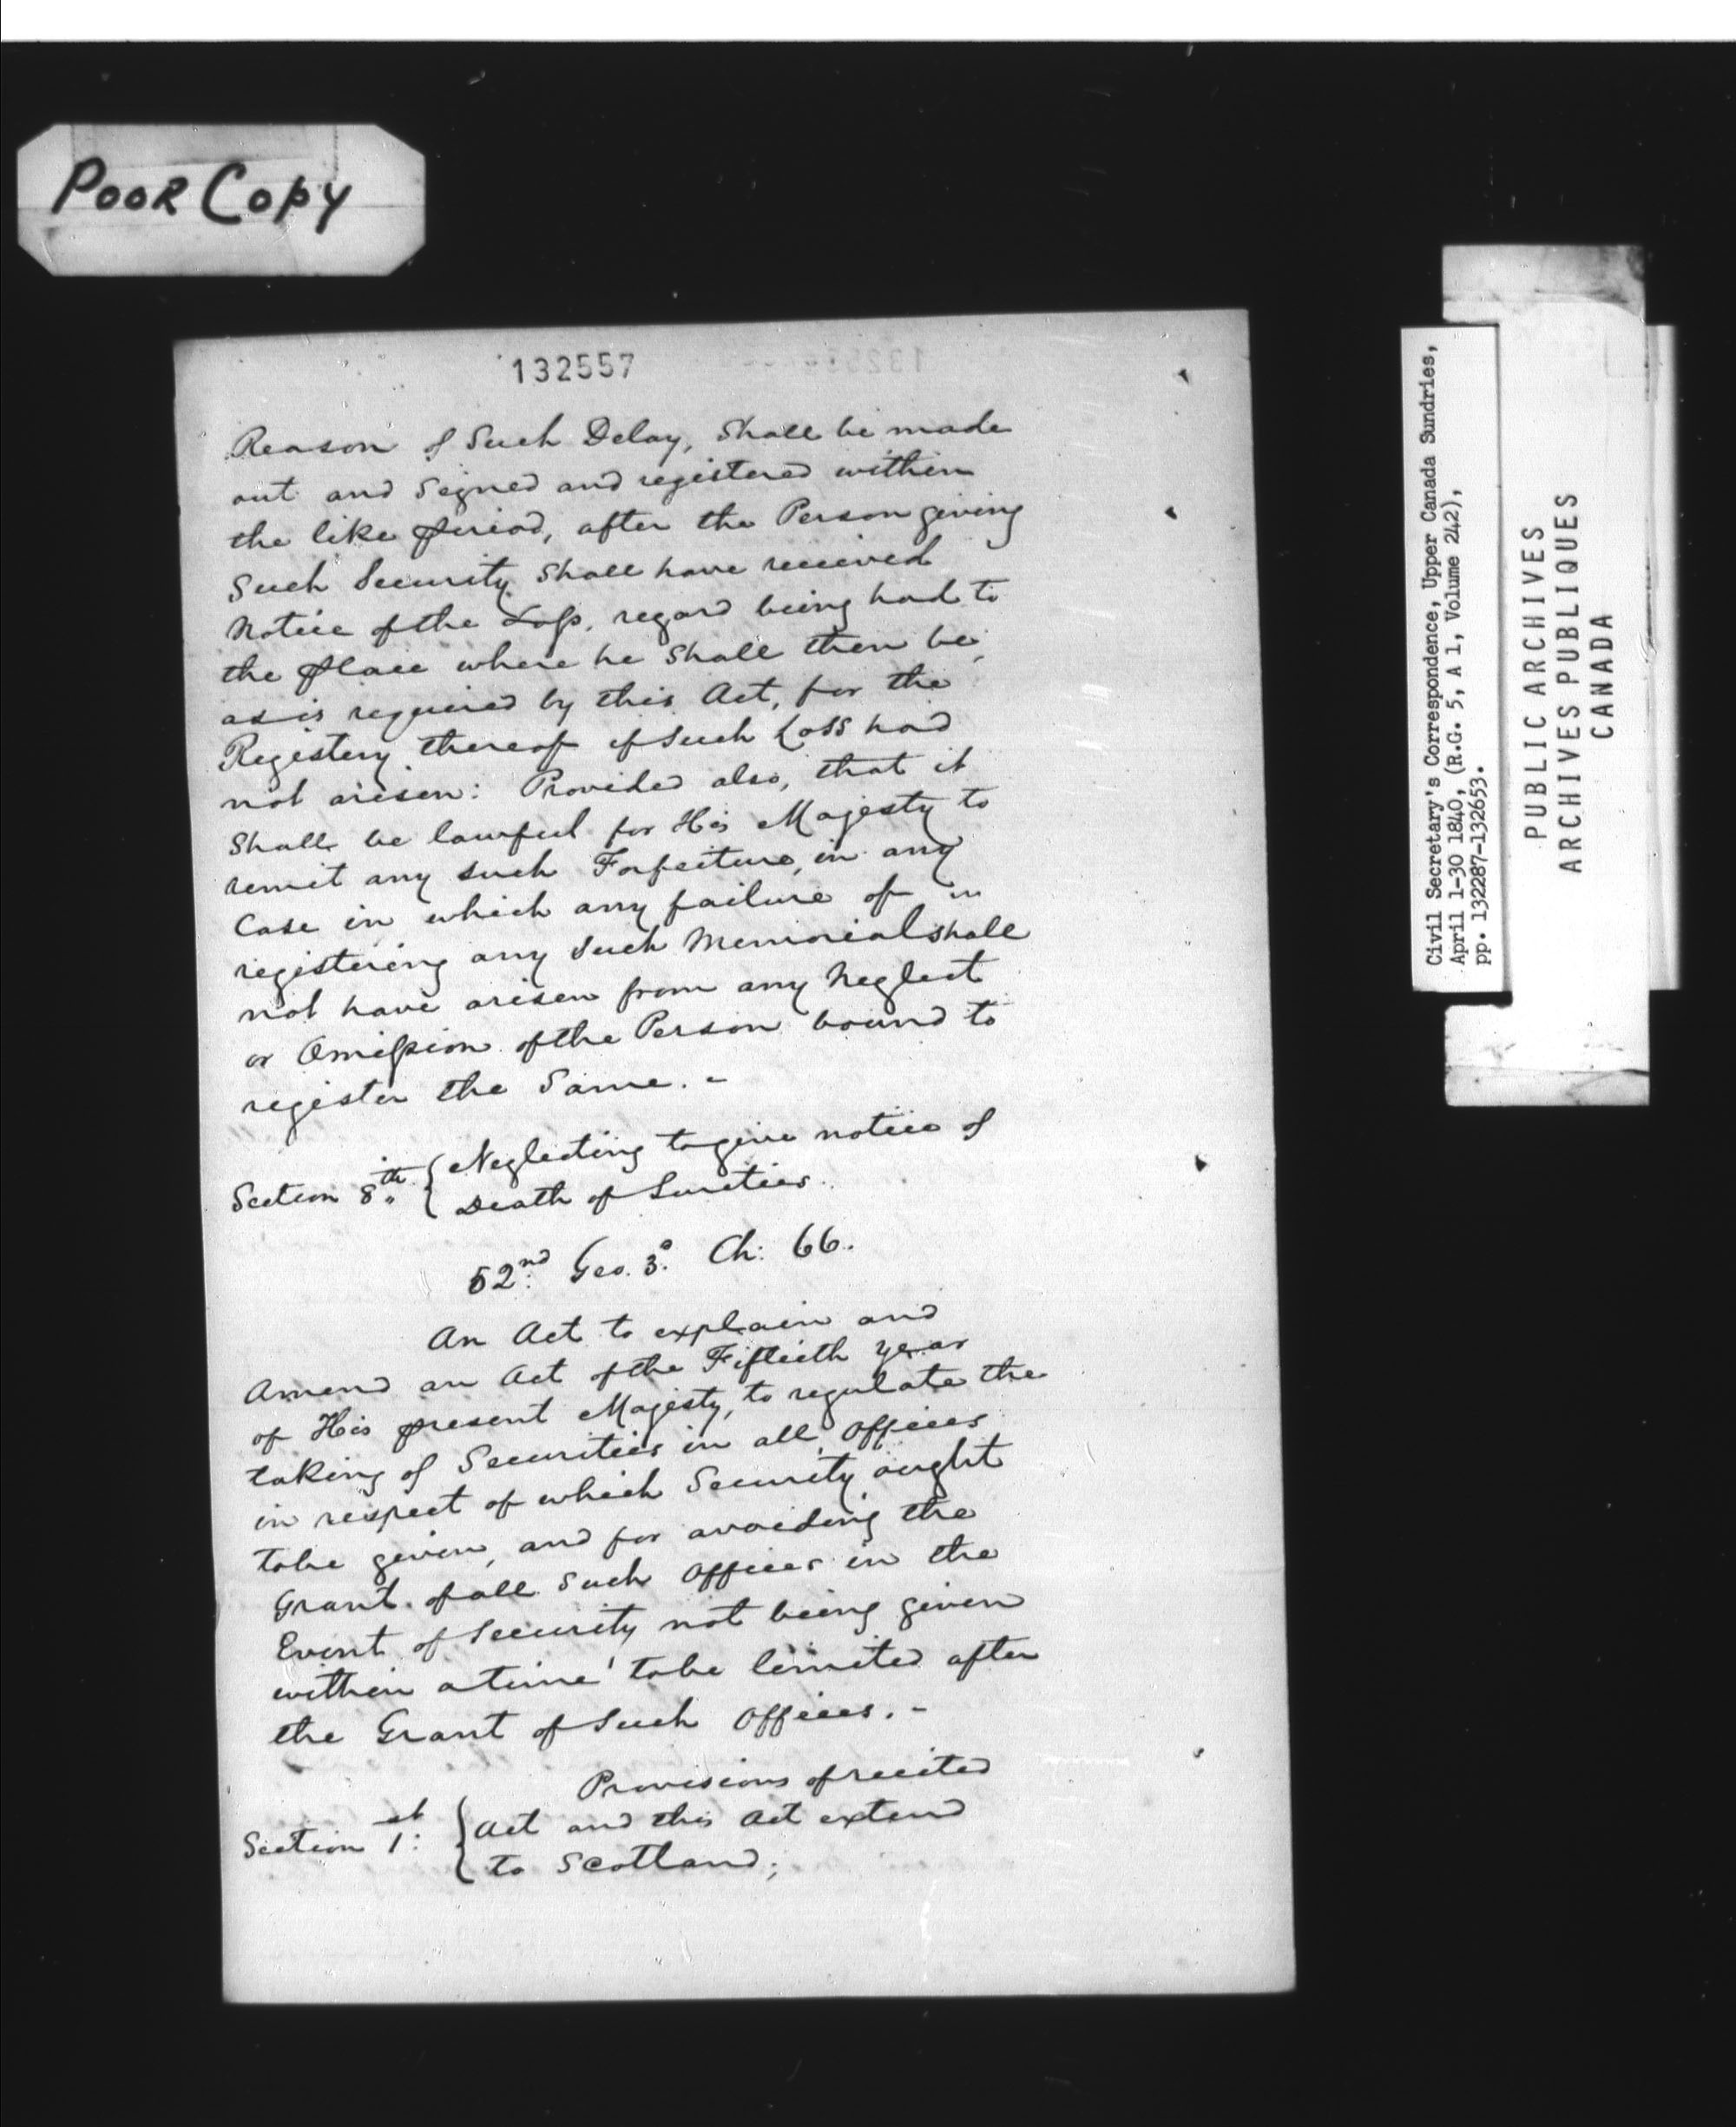 POOR COPY
132557
Reason of Such Delay, Shall be made
out and Signed and registered within
the like period, after the Person giving
Such Security Shall have received
Notice of the Loss, regard being had to
the place where he Shall then be,
as is required by this Act, for the
Registery thereof if Such Loss had
not arisen: Provided also, that it
Shall be lawful for His Majesty to
remit any such Forfeiture, in any
Case in which any failure of in
registering any Such Memorial shall
not have arisen from any Neglect
or Omission of the Person bound to
register the Same. -
Section 8th { Neglecting to give notice of
Death of Sureties.
52nd Geo. 3o Ch: 66.
An Act to explain and
Amend an Act of the Fiftieth year
of His present Majesty, to regulate the
taking of Securities in all Offices
in respect of which Security ought
to be given, and for avoiding the
Grant of all Such Offices in the
Event of Security not being given
within a time to be limited after
the Grant of Such Offices. -
Provisions of recited
Section 1st { Act and this Act extend
to Scotland;
Civil Secretary's Correspondence, Upper Canada Sundries,
April 1-30 1840, (R.G. 5, A 1, Volume 242),
pp. 132287-132653.
PUBLIC ARCHIVES
ARCHIVES PUBLIQUES
CANADA